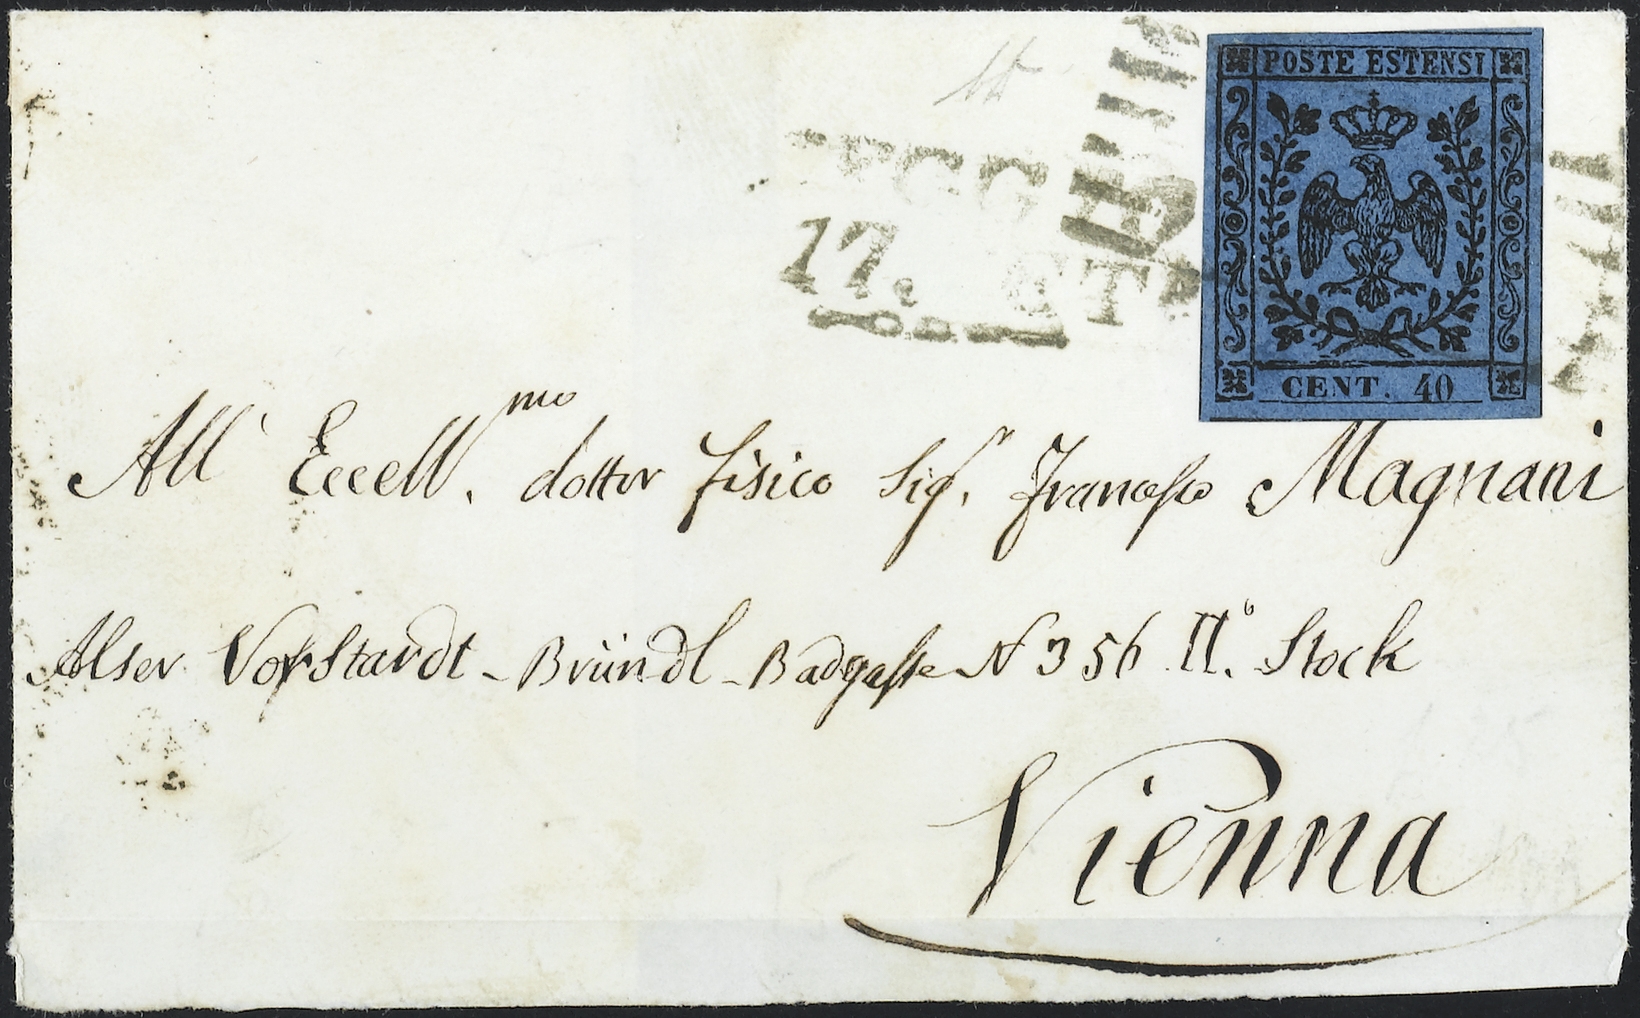 POSTE ESTENSI
CENT. 40
17.
All' Eccell.mo dottor fisico Sig.r Francesco Magnani
Alser Vorstardt - Bründl - Badgasse N 356 II.° Stock
Vienna